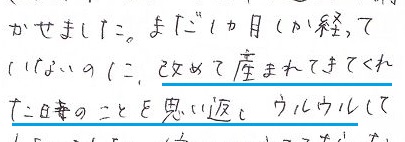 かせました。まだ1ヵ月しか経って
いないのに、改めて産まれてきてくれ
た時のことを思い返しウルウルして